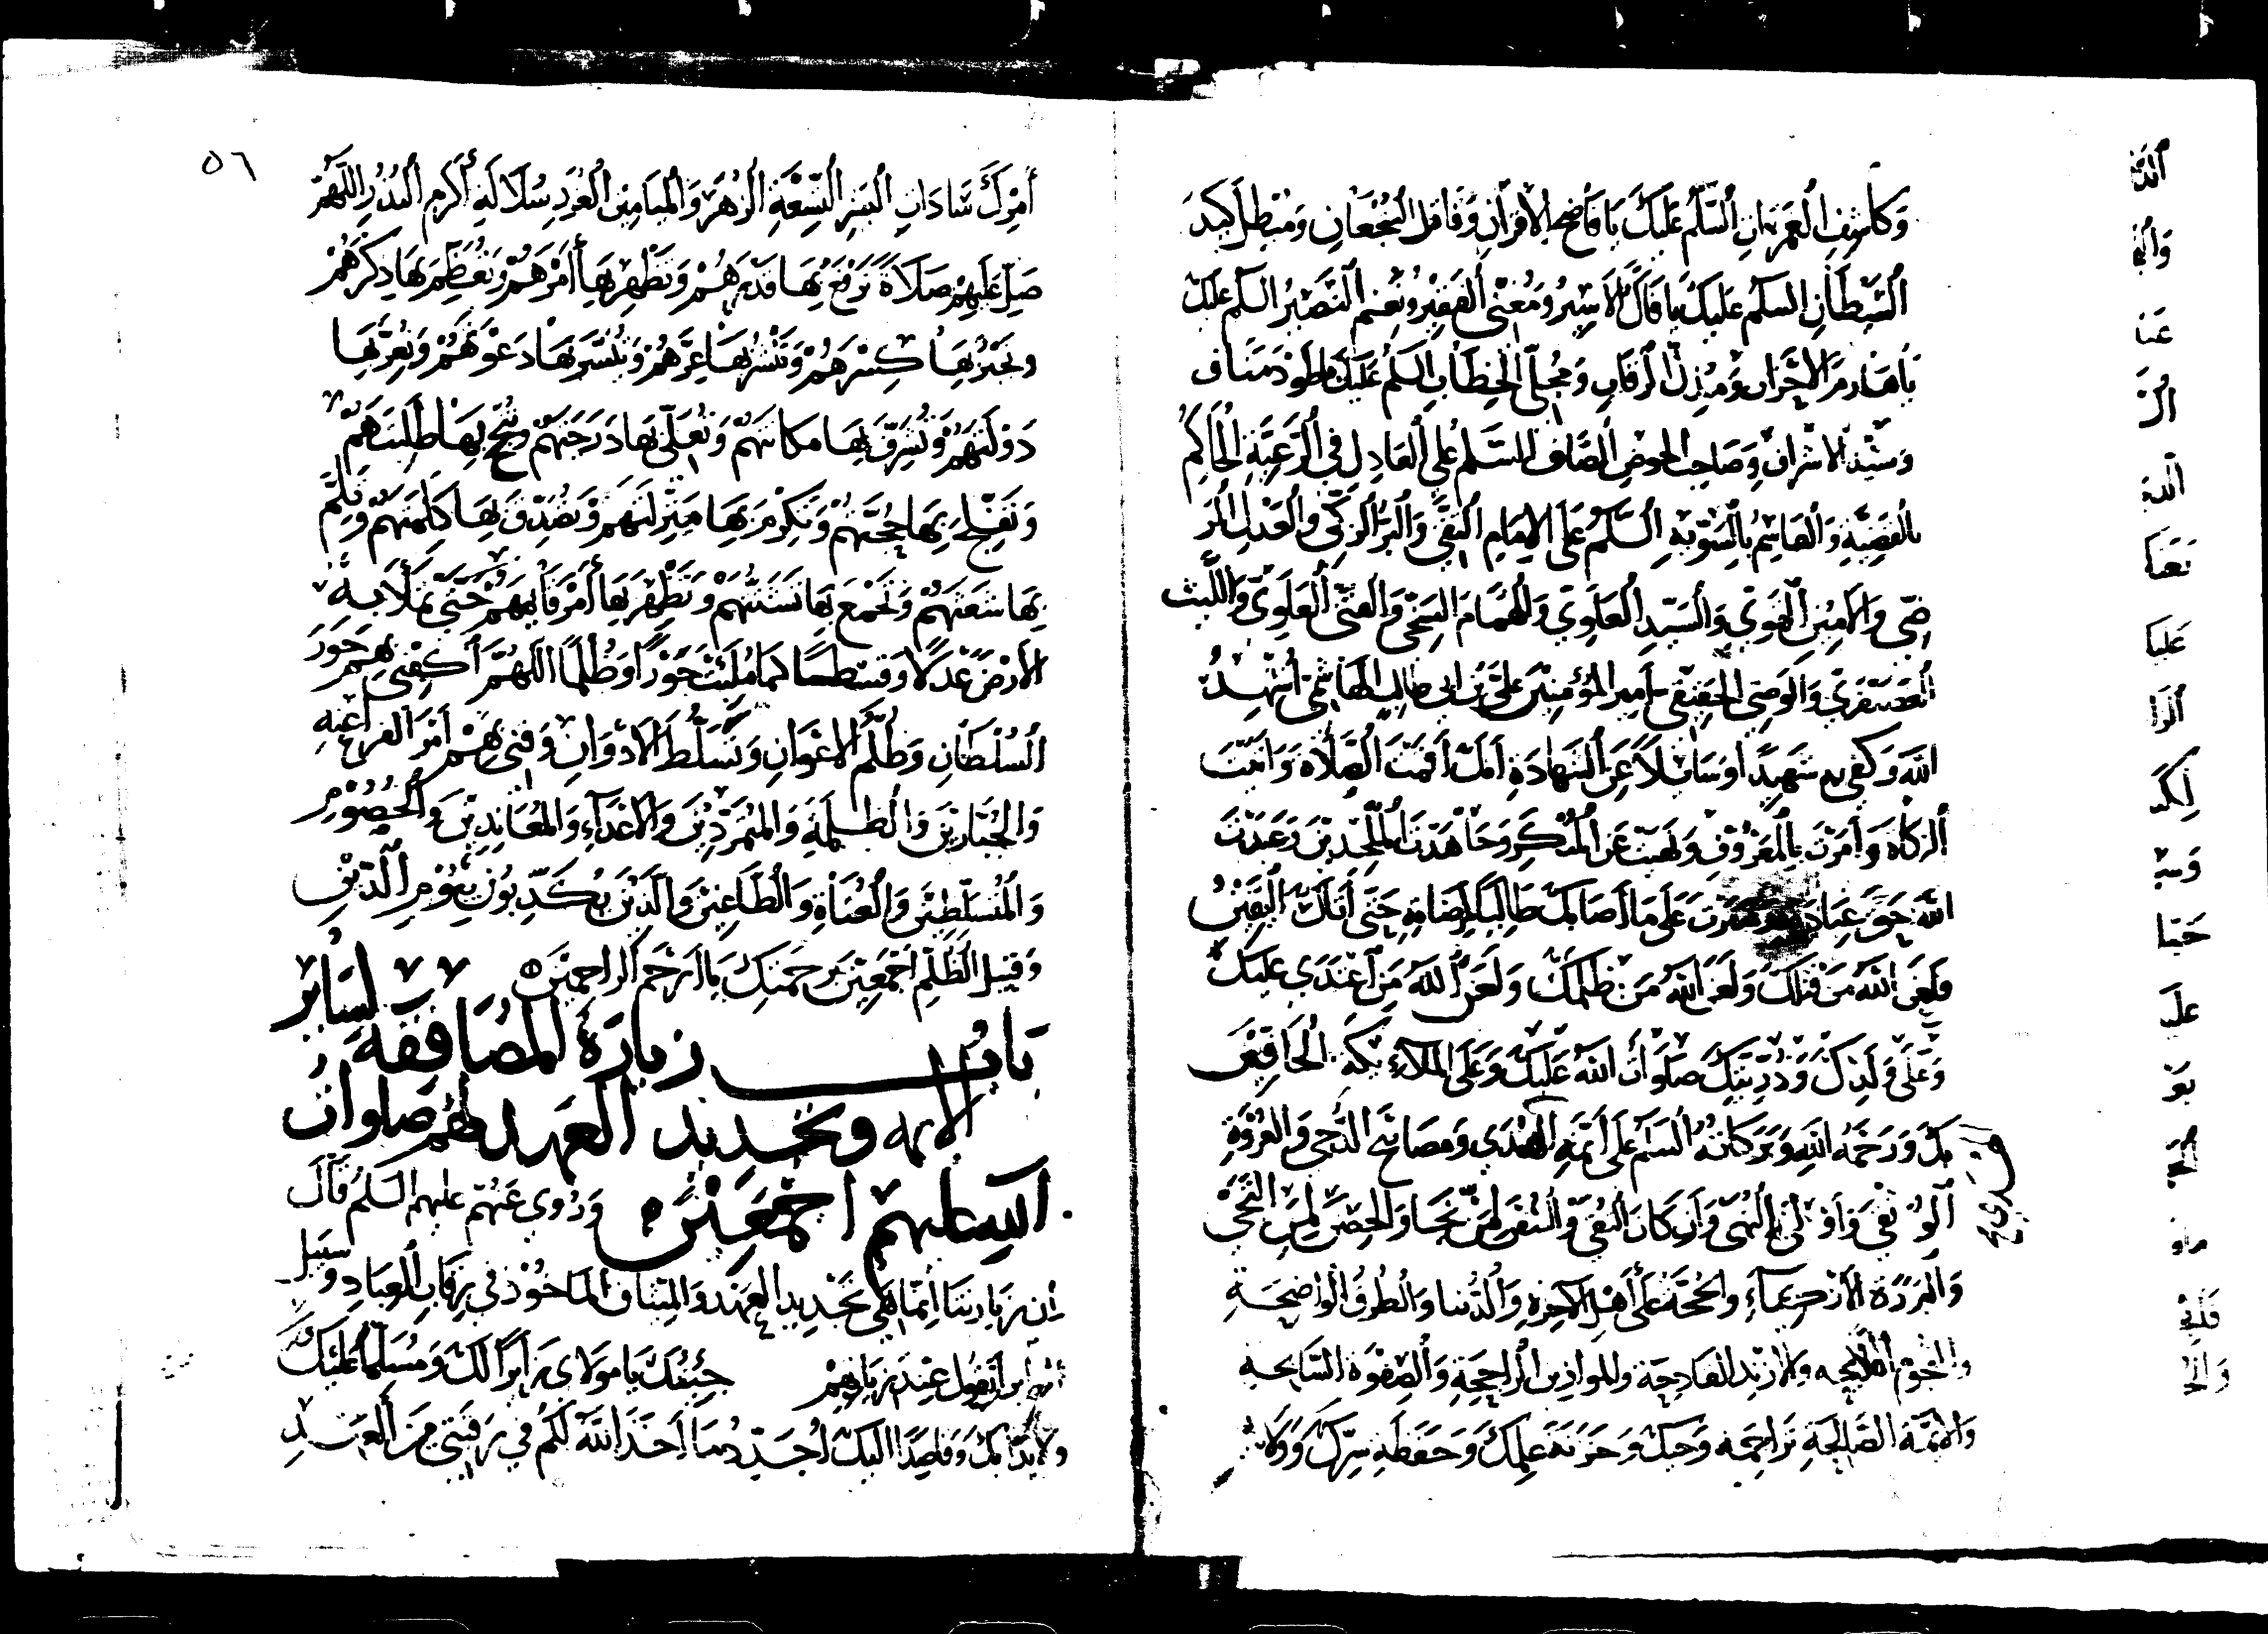 وَكَاشِفِ الْغَمَرَاتِ السَّلَمُ عَلَيْكَ يَا فَاضِحَ الْأَقْرَانِ وَقَاتِلَ الشُّجْعَانِ وَمُبْطِلَ كَيْدَ
الشَّيْطَانِ السلم عَلَيْكَ يا فَاكَّ الْأَسِيرِ وَمُغْنِيَ الْفَقِيرِ وَنِعْمَ النَّصِيرُ السلم عليك
يَا هَازِمَ الْأَحْزَابِ وَمُذِلَّ الرِّقَابِ وَمُجَلِّي الْخِطَابِ السلم عَلَيْكَ يا طَوْدَ مَنَاف
وَسَيِّدَ الأشراف وَصَاحِبَ الحوضِ الصَّاف السَّلمُ عَلَى الْعَادِلِ فِي الرَّعِيَّةِ الْحَاكِمُ
بالقَضِيَّةِ وَالْقَاسِمُ بِالسَّوِيَّةِ السَّلَمُ عَلَى الإمَامِ التَّقِيِّ وَالْبَرِّ الزَّكِيِّ وَالْعَدِيلِ الْمَرْ
ضِي وَالْأَمِينِ الْقَوِيِّ وَالسَّيِّدِ الْعَلَوِيِّ وَالْهُمَامِ السَّخِيِّ وَالْغَنِيِّ الْعَلَوِيِّ وَاللَّيْث
الْغَضَنْفَرِيِّ وَالْوَصِيِّ الْحَقِيقِي أمير المؤمنين عَلِيِّ بْنِ ابى طالِبٍ الْهَاشِمِي أُشْهِدُ
اللَّهَ وَكَفَى به شَهِيدًا وَسَائِلًا عَنِ الشَّهَادَةِ أَنَّكَ أَقَمْتَ الصَّلَاةَ وَآتَيْتَ
الزَّكَاةَ وَأَمَرْتَ بِالْمَعْرُوفِ وَنَهَيْتَ عَنِ الْمُنْكَرِ وَجَاهَدْتَ الْمُلْحِدِينَ وَعَبَدْتَ
اللَّهَ حَقَّ عِبَادَتِهِ وَصَبَرْتَ عَلَى مَا أَصَابَكَ طَالِبًا لِرِضَاهِ حَتَّى أَتَاكَ الْيَقِينُ
فَلَعَنَ اللَّهُ مَنْ قَتَلَكَ وَلَعَنَ اللَّهُ مَنْ ظَلَمَكَ وَلَعَنَ اللَّهُ مَنِ اعْتَدَى عليك
وَعَلَى وُلْدِكَ وَذُرِّيَّتِكَ صَلَوَاتُ اللَّهِ عَلَيْكَ وَعَلَى الملائِكَةِ الْحَافِّينَ
بِكَ وَرَحْمَةُ اللَّهِ وَبَرَكَاتُهُ السَلمُ عَلَى أَئِمَّةِ الْهُدَى وَمَصَابِيحِ الدُّجَى وَالْعُرْوَةِ
الْوُثْقَى وَأُولِي النُّهَى وَأَرْكَانِ التُّقَى وَالسُّفُنِ لِمَنْ نَجَا وَالْحِصْنِ لِمَنِ الْتَجَى
وَالْبَرَرَةِ الْأَزْكِيَاءِ وَالْحُجَّةُ عَلَى أَهْلِ الْآخِرَةِ وَالدُّنْيا وَالطُّرُقِ الْوَاضِحَةِ
والنجوم اللَّائِحَه والأزند القَادِحَة والموازين الرَّاجِحَةِ وَالصَّفْوَةِ السَّابِحَه
وَالأئِمَّة الصَّالِحَةِ تراجمة وَحْيِكَ وَخَزَنَة عِلْمِكَ وَحَفَظَةِ سِرِّكَ وَوُلَاة
٥٦
أَمْرِكَ سَادَاتِ الْبَشَرِ التِّسْعَةِ الزُّهَرِ وَالْمَيَامِينِ الْغُرَرِ سُلَالَةِ أَكْرَمِ الْبُدُورِ اللَّهُمَّ
صَلِّ عَلَيْهِمْ صَلَاةً تَرْفَعُ بِهَا قَدْرَهُمْ وَتُظْهِرُ بِهَا أَمْرَهُمْ وَتُعَظِّمُ بِهَا ذِكْرَهُمْ
وَتَجْبُرُ بِهَا كَسْرَهُمْ وَتَنْشُرُ بِهَا عِزَّهُمْ وَتَنْشُرَ بِهَا دَعْوَتَهُمْ وَتُعِزُّ بِهَا
دَوْلَتَهُمْ وَتُشَرِّفُ بِهَا مكَانَتَهُمْ وَتُعَلِّي بِهَا دَرَجَتَهُمْ وَتُنْجِحُ بِهَا طَلِبَتَهُمْ
وَتُفْلِجُ بِهَا حُجَّتَهُمْ وَتُكْرِمُ بِهَا مَنْزِلَتَهُمْ وَتُصَدِّقُ بِهَا كَلِمَتَهُمْ وَتَلُمَّ
بِهَا شَعَثَهُمْ وَتَجْمَعُ بِهَا تَشَتُّتَهُمْ وَتُظْهِرَ بِهَا أَمْرَ قَائِمِهِمْ حَتَّى تَمْلَأَ بِهِ
الْأَرْضَ عَدْلًا وَقِسْطًا كَمَا مُلِئَتْ جَوْرًا وَظُلْمًا اللَّهُمَّ اكْفِنِي بِهِمْ جَوْرَ
السُّلْطَانِ وَظُلْمَ الأَعْوَانِ وَتَسَلُّطَ الْأَدْوَانِ وَقِنِي بِهِمْ أَمْرَ الْفَرَاعِنَةِ
وَالْجَبَّارِينَ وَالظَّلَمَةِ وَالْمُتَمَرِّدِينَ وَالْأَعْدَاءِ وَالْمُعَانِدِينَ وَالْخُصُومِ
وَالْمُتَسَلِّطِينَ وَالْعُتَاةِ وَالطَّاغِينَ وَالَّذِينَ يُكَذِّبُونَ بِيَوْمِ الدِّينِ
وَقَبِيلِ الظُّلْمِ أَجْمَعِينَ بِرَحْمَتِكَ يَا أَرْحَمَ الرَّاحِمِينَ
بَابُ زيارَةُ الْمُصَافَقَة لِسَائِر
الأئمه وتجديد العهد لهم صلوات
الله عليهم اجمعين وَرُوِي عَنْهُمْ عليهم السَّلمُ قَالَ
إن زيَارَتَنَا إنَّمَا هِيَ تَجْدِيدُ الْعَهْدِ وَالْمِيثَاقِ الْمَأْخُوذِ فِي رِقَابِ الْعِبَادِ وسَبِيلُ
الزائر أن يقول عِنْدَ زِيَارَتِهِمْ جِئْتُكَ يَا مَوْلَايَ زَائِرًا لَكَ وَمُسَلِّمًا عَلَيْكَ
ولائذا بك وَقَاصِدًا إليك أُجَدِّدُ مَا أَخَذَ اللَّهُ لَكُمْ فِي رَقَبَتِي مِنَ الْعَهْدِ